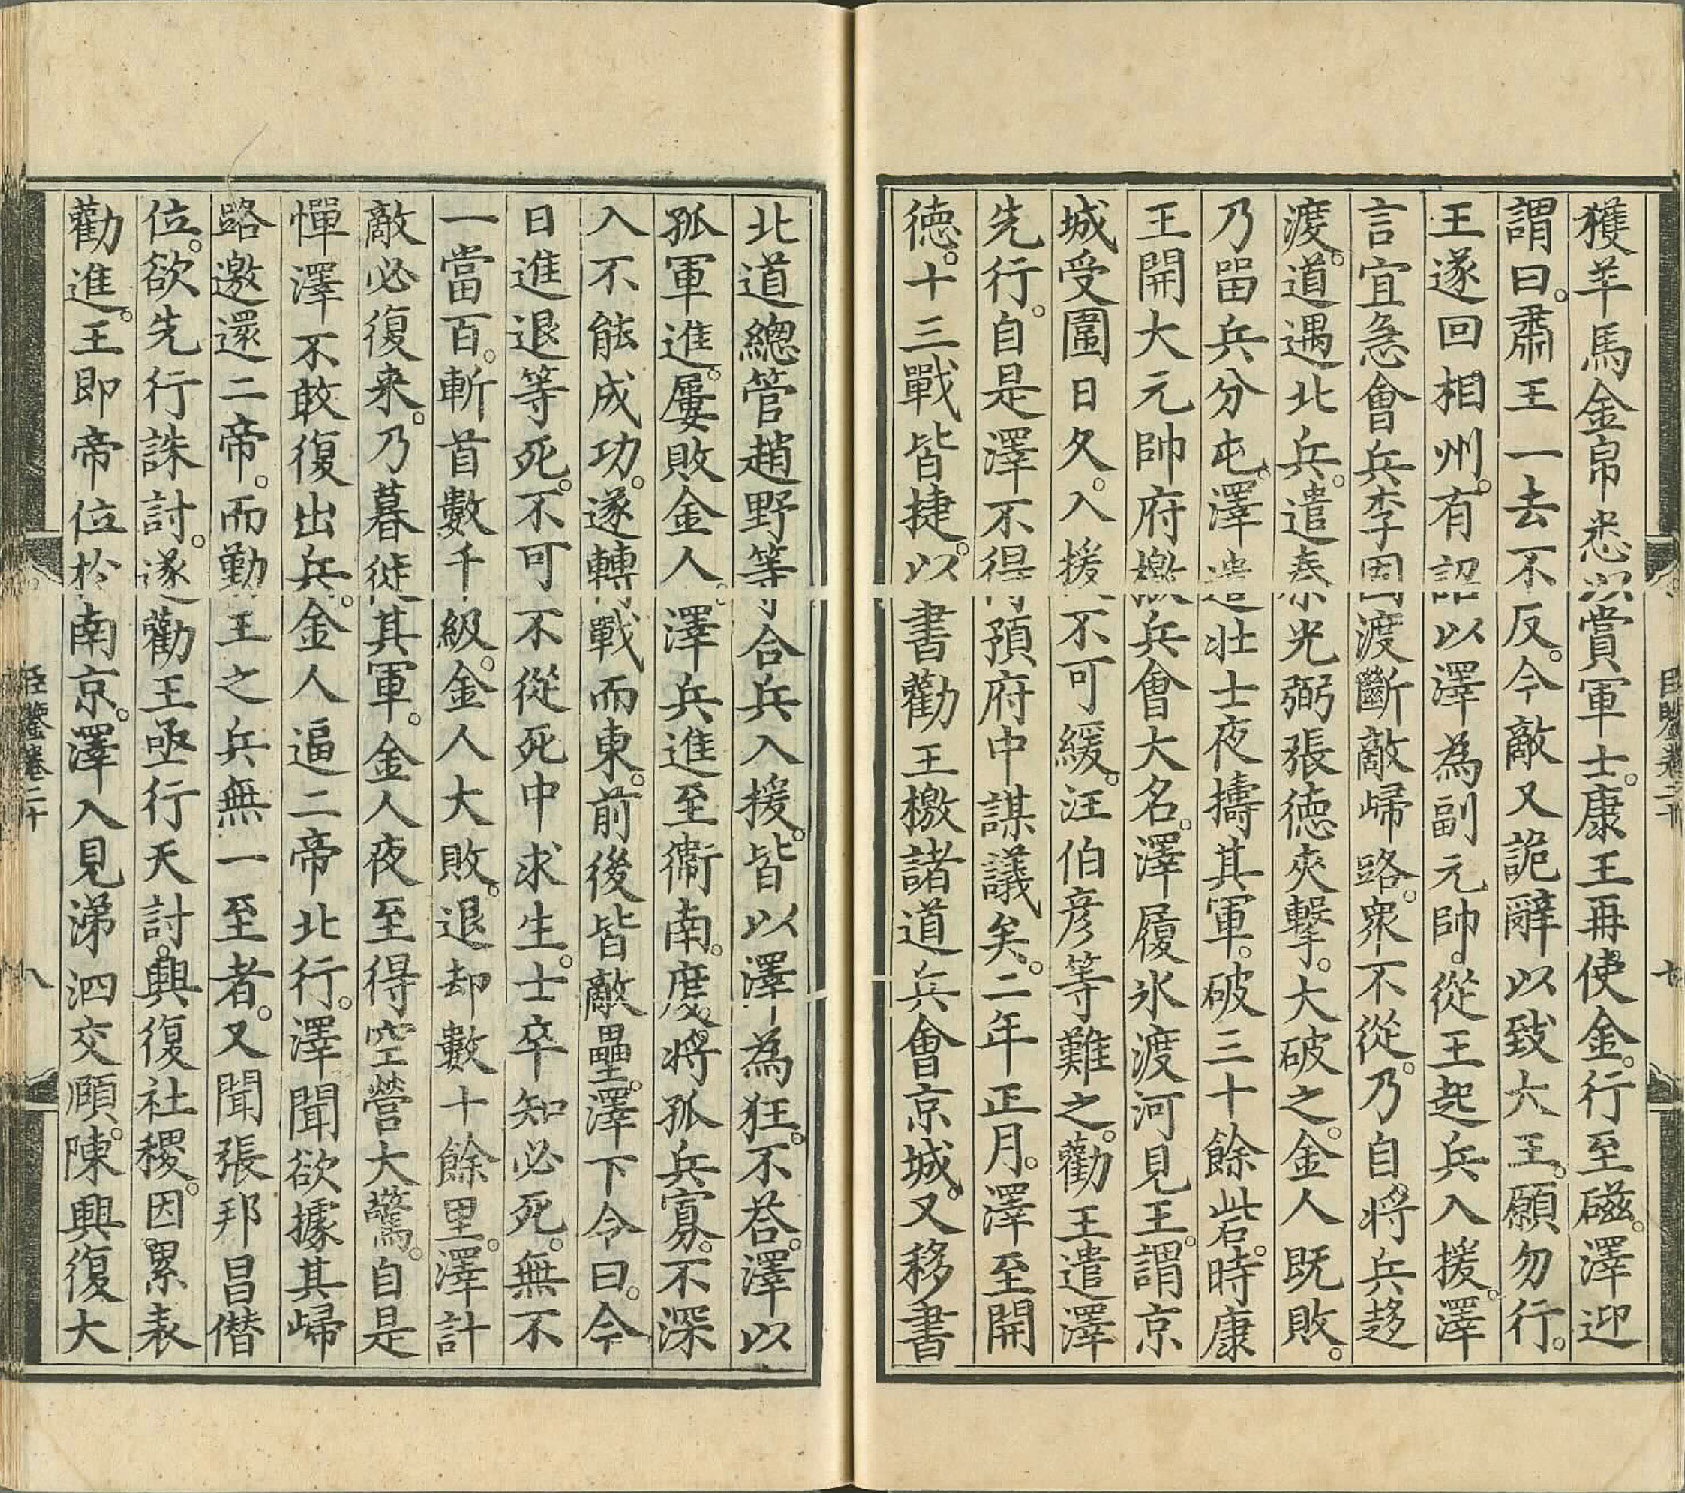 獲羊馬金帛悉以賞軍士。康王再使金。行至磁。澤迎
謂曰。肅王一去不反。今敵又詭辭以致大王。願勿行。
王遂回相州。有詔以澤為副元帥。從王起兵入援。澤
言宜急會兵李固渡斷敵歸路。眾不從。乃自將兵趨
渡。道遇北兵。遣秦光弼張德夾擊。大破之。金人既敗。
乃畱兵分屯。澤遣壯士夜擣其軍。破三十餘砦。時康
王開大元帥府檄兵會大名。澤履冰渡河見王。謂京
城受圍日久。入援不可緩。汪伯彥等難之。勸王遣澤
先行。自是澤不得預府中謀議矣。二年正月。澤至開
德。十三戰皆捷。以書勸王檄諸道兵會京城。又移書
北道總管趙野等合兵入援。皆以澤為狂。不荅。澤以
孤軍進。屢敗金人。澤兵進至衛南。度。將孤兵寡。不深
入不能成功。遂轉戰而東。前後皆敵壘。澤下令曰。今
日進退等死。不可不從死中求生。士卒知必死。無不
一當百。斬首數千級。金人大敗。退却數十餘里。澤計
敵必復來。乃暮徙其軍。金人夜至得空營大驚。自是
憚澤不敢復出兵。金人逼二帝北行。澤聞欲據其歸
路邀還二帝。而勤王之兵無一至者。又聞張邦昌僭
位。欲先行誅討。遂勸王亟行天討。興復社稷。因累表
勸進。王即帝位於南京。澤入見涕泗交頤。陳興復大
臣鑒卷二十
八